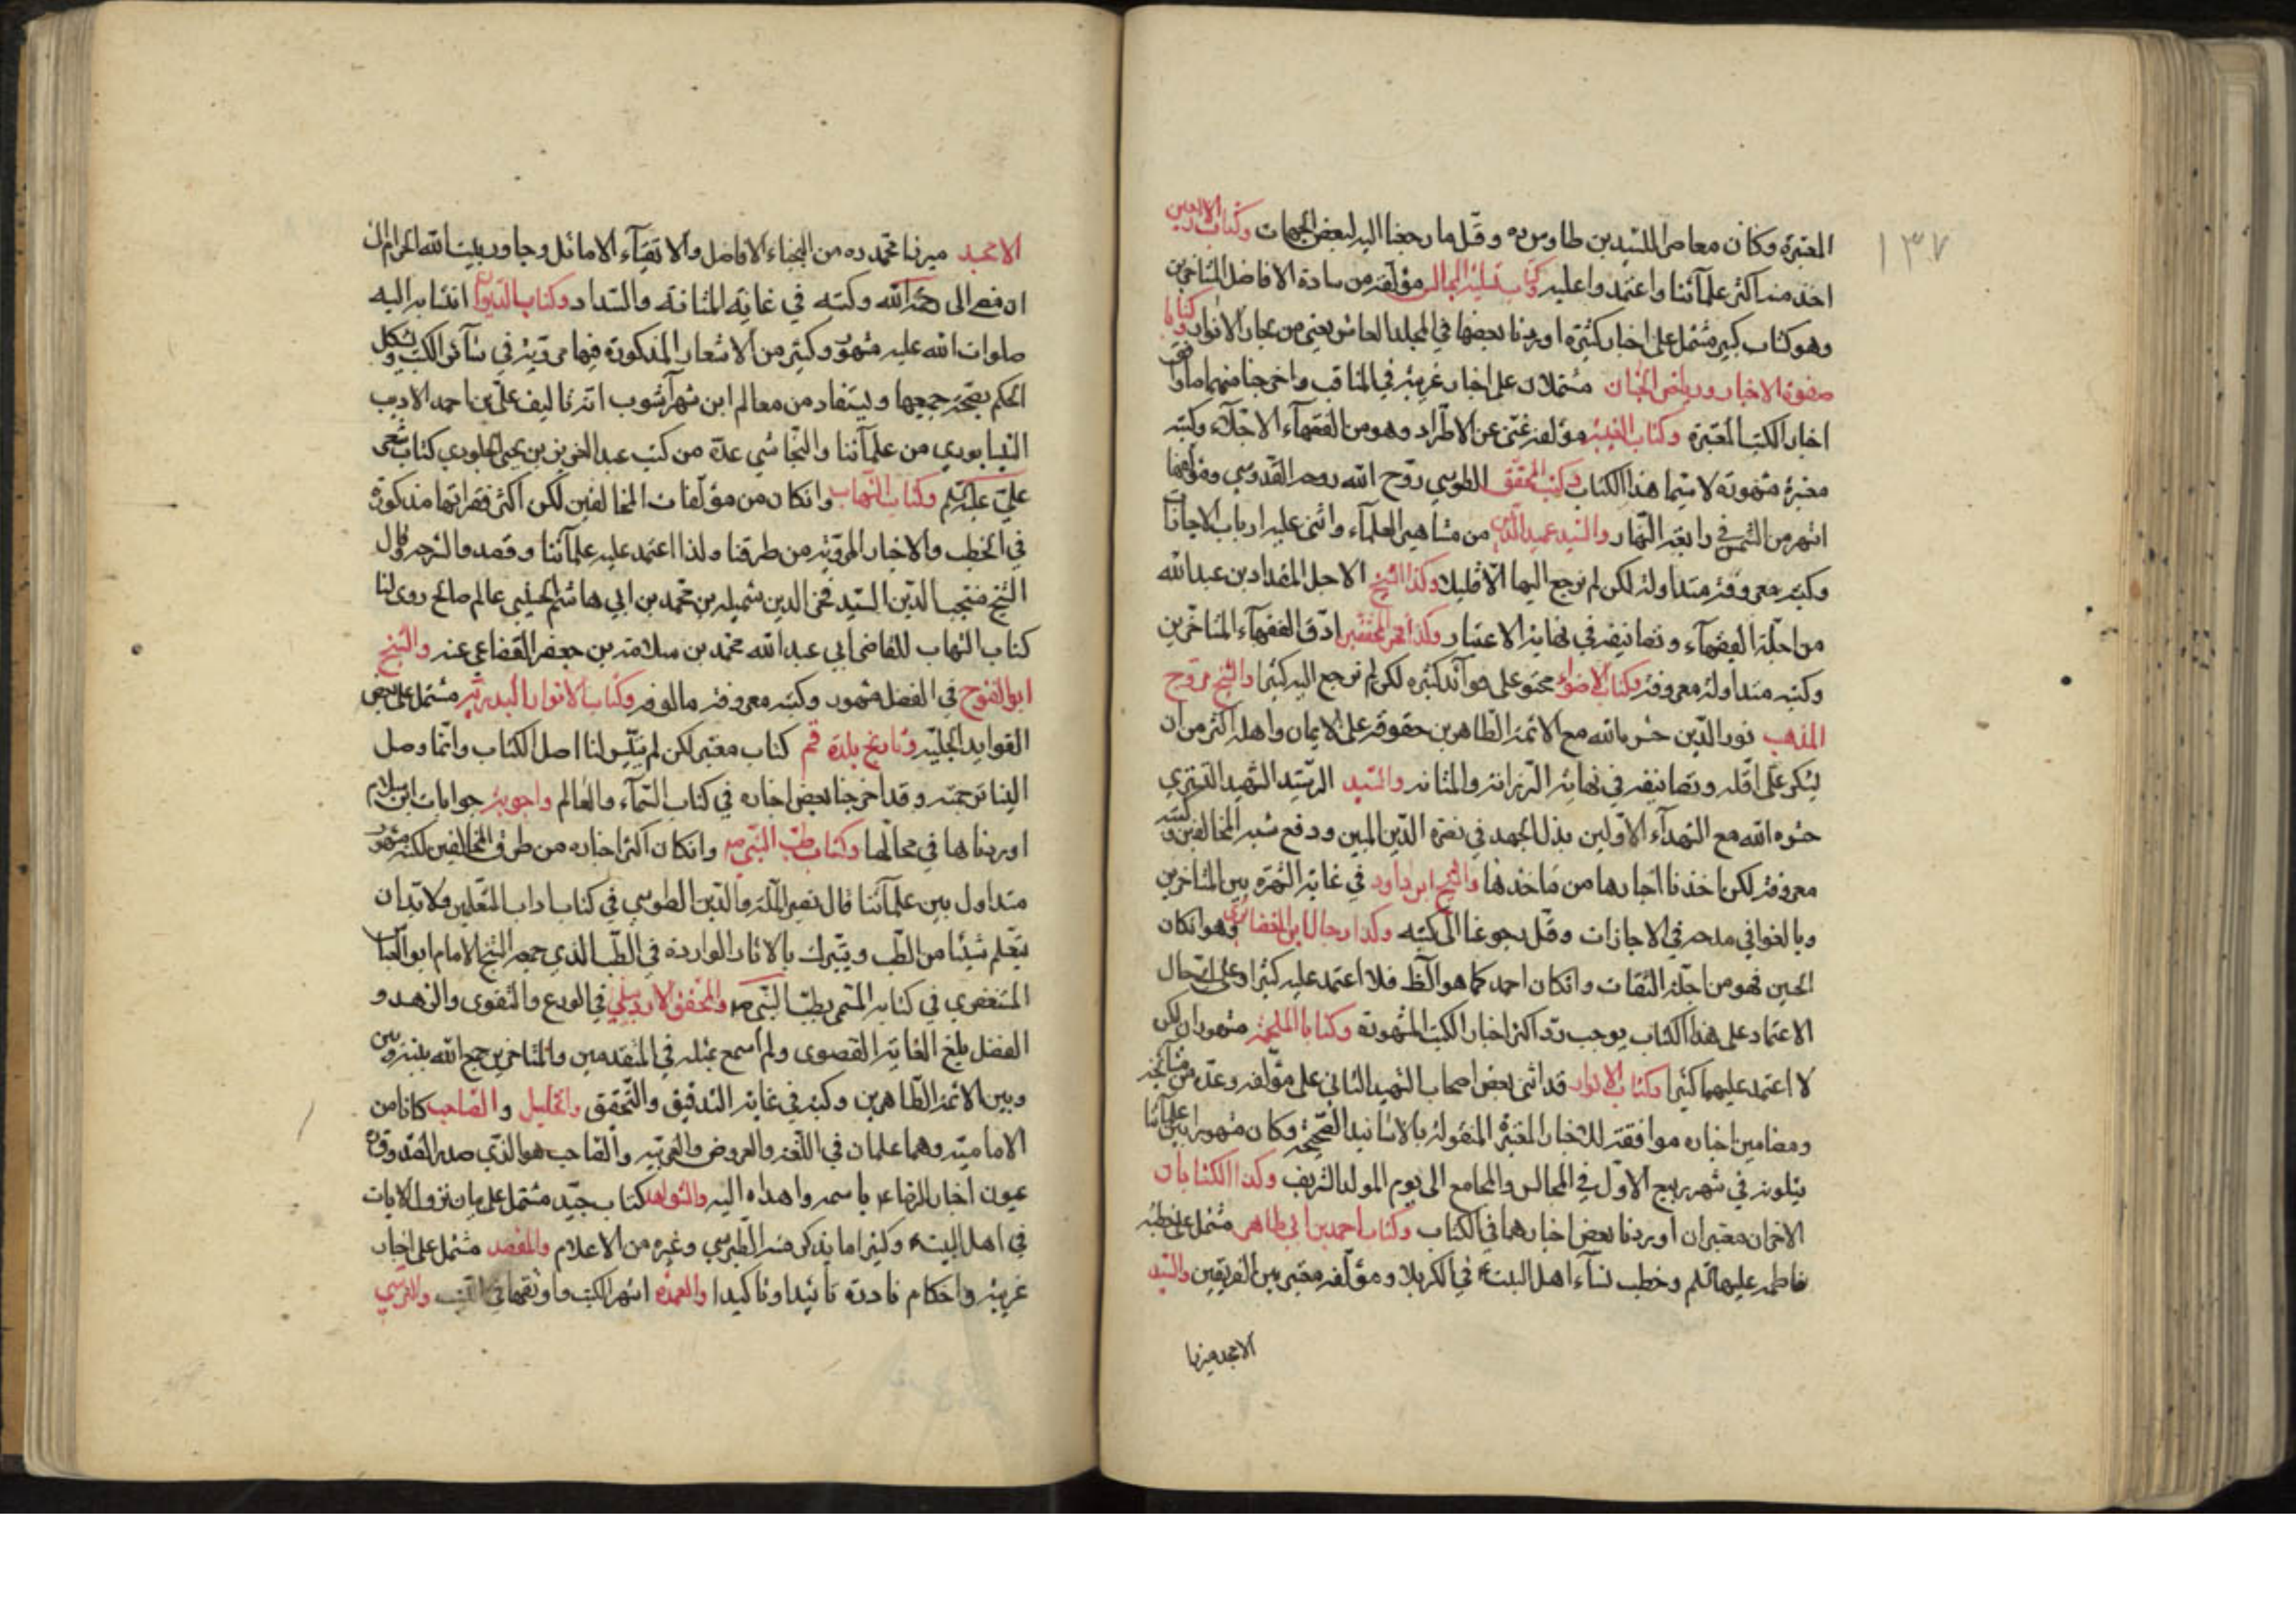 ١٣٧
المعتبرة وكان معاصر اللسيد بن طاوس ره وقل ما رجعنا اليه لبعض الجهات وكتاب الاربعين
اخذ منه اكثر علمآئنا واعتمدوا عليه وكتاب تسلية المجالس مؤلفه من سادة الافاضل المتاخرين
وهو كتاب كبير مشتمل على اخبار كثيرة اوردنا بعضها في المجلد العاشر يعني من بحار الانوار وكتابا
صفوة الاخبار ورياض الجنان مشتملان على اخبار غريبة في المناقب واخرجنا منهما ما وافق
اخبار الكتب المعتبرة وكتاب الغيبة مؤلفه غني عن الاطراد وهو من الفقهآء الاجلآء وكتبه
معتبرة مشهورة لا سيما هذا الكتاب وكتب المحقق الطوسي روح الله روحه القدوسي ومؤلفها
اشهر من الشمس في رابعة النهار والسيد عميد الدين من مشاهير العلمآء واثنى عليه ارباب الاجازات
وكتبه معروفة متداولة لكن لم نرجع اليها الا قليلا وكذا الشيخ الاجل المقداد بن عبد الله
من اجلة الفقهآء وتصانيفه في نهاية الاعتبار وكذا فخر المحققين ادق الفقهآء المتاخرين
وكتبه متداولة معروفة وكتاب الاضواء محتو على فوآئد كثيرة لكن لم نرجع اليه كثيرا والشيخ مروج
المذهب نور الدين حشره الله مع الائمة الطاهرين حقوقه على الايمان واهله اكثر من ان
يشكر على اقله وتصانيفه في نهاية الرزانة والمتانة والسيد الرشيد الشهيد التستري
حشره الله مع الشهدآء الاولين بذل الجهد في نصرة الدين المبين ودفع شبه المخالفين وكتبه
معروفة لكن اخذنا اخبارها من مآخذها والشيخ ابن داود في غاية الشهرة بين المتاخرين
وبالغوا في مدحه في الاجازات وقل رجوعنا الى كتبه وكذا رجال ابن الغضائري وهو ان كان
الحسين فهو من اجلة الثقات وان كان احمد كما هو الظ فلا اعتمد عليه كثيرا وعلى اي حال
الاعتماد على هذا الكتاب يوجب رد اكثر اخبار الكتب المشهورة وكتابا الملحمة مشهوران لكن
لا اعتمد عليهما كثيرا وكتاب الانوار قد اثنى بعض اصحاب الشهيد الثاني على مؤلفه وعده من مشايخه
ومضامين اخباره موافقة للاخبار المعتبرة المنقولة بالاسانيد الصحيحة وكان مشهورا بين علمآئنا
يتلونه في شهر ربيع الاول في المجالس والمجامع الى يوم المولد الشريف وكذا الكتابان
الاخران معتبران اوردنا بعض اخبارهما في الكتاب وكتاب احمد بن ابي طاهر مشتمل على خطبة
فاطمه عليها السلم وخطب نسآء اهل البيت ع في الكربلا ومؤلفه معتبر بين الفريقين والسيد
الامجد ميرزا
الامجد ميرزا محمد ره من النجباء الافاضل والاتقيآء الاماثل وجاور بيت الله الحرام الى
ان مضى الى رحمة الله وكتبه في غاية المتانة والسداد وكتاب الديوان انتسابه اليه
صلوات الله عليه مشهور وكثير من الاشعار المذكورة فيها مروية في سآئر الكتب ويشكل
الحكم بصحة جميعها ويستفاد من معالم ابن شهرآشوب انه تاليف علي بن احمد الاديب
النيسابوري من علمآئنا والنجاشي عد من كتب عبد العزيز بن يحيى الجلودي كتاب شعر
علي عليه السلم وكتاب الشهاب وان كان من مؤلفات المخالفين لكن اكثر فقراتها مذكورة
في الخطب والاخبار المروية من طرقنا ولذا اعتمد عليه علمآئنا وقصدوا لشرحه وقال
الشيخ منتجب الدين السيد فخر الدين شميلة بن محمد بن ابي هاشم الحسيني عالم صالح روى لنا
كتاب الشهاب للقاضي ابي عبد الله محمد بن سلامة بن جعفر القضاعي عنه والشيخ
ابو الفتوح في الفضل مشهور وكتبه معروفة مالوفة وكتاب الانوار البدرية مشتمل على بعض
الفوايد الجليلة وتاريخ بلدة قم كتاب معتبر لكن لم يتيسر لنا اصل الكتاب وانما وصل
الينا ترجمته وقد اخرجنا بعض اخباره في كتاب السمآء والعالم واجوبة جوابات ابن سلام
اوردناها في محالها وكتاب طب النبي ص وان كان اكثر اخباره من طرق المخالفين لكنه مشهور
متداول بين علمآئنا قال نصير الملة والدين الطوسي في كتاب اداب المتعلمين ولا بد ان
يتعلم شيئا من الطب ويتبرك بالاثار الواردة في الطب الذي جمعه الشيخ الامام ابو العباس
المستغفري في كتابه المسمى بطب النبي ص والمحقق الاردبيلي في الورع والتقوى والزهد و
الفضل بلغ الغاية القصوى ولم اسمع بمثله في المتقدمين والمتاخرين جمع الله بينه وبين
وبين الائمة الطاهرين وكتبه في غاية التدقيق والتحقيق والخليل والصاحب كانا من
الامامية وهما علمان في اللغة والعروض والعربية والصاحب هو الذي صدر الصدوق
عيون اخبار الرضا ع باسمه واهداه اليه والشواهد كتاب جيد مشتمل على بيان نزول الايات
في اهل البيت ع وكثيرا ما يذكر منه الطبرسي وغيره من الاعلام والمقصد مشتمل على اخبار
غريبة واحكام نادرة تائيدا وتاكيدا والعمدة اشهر الكتب واوثقها في النسب والنرسي